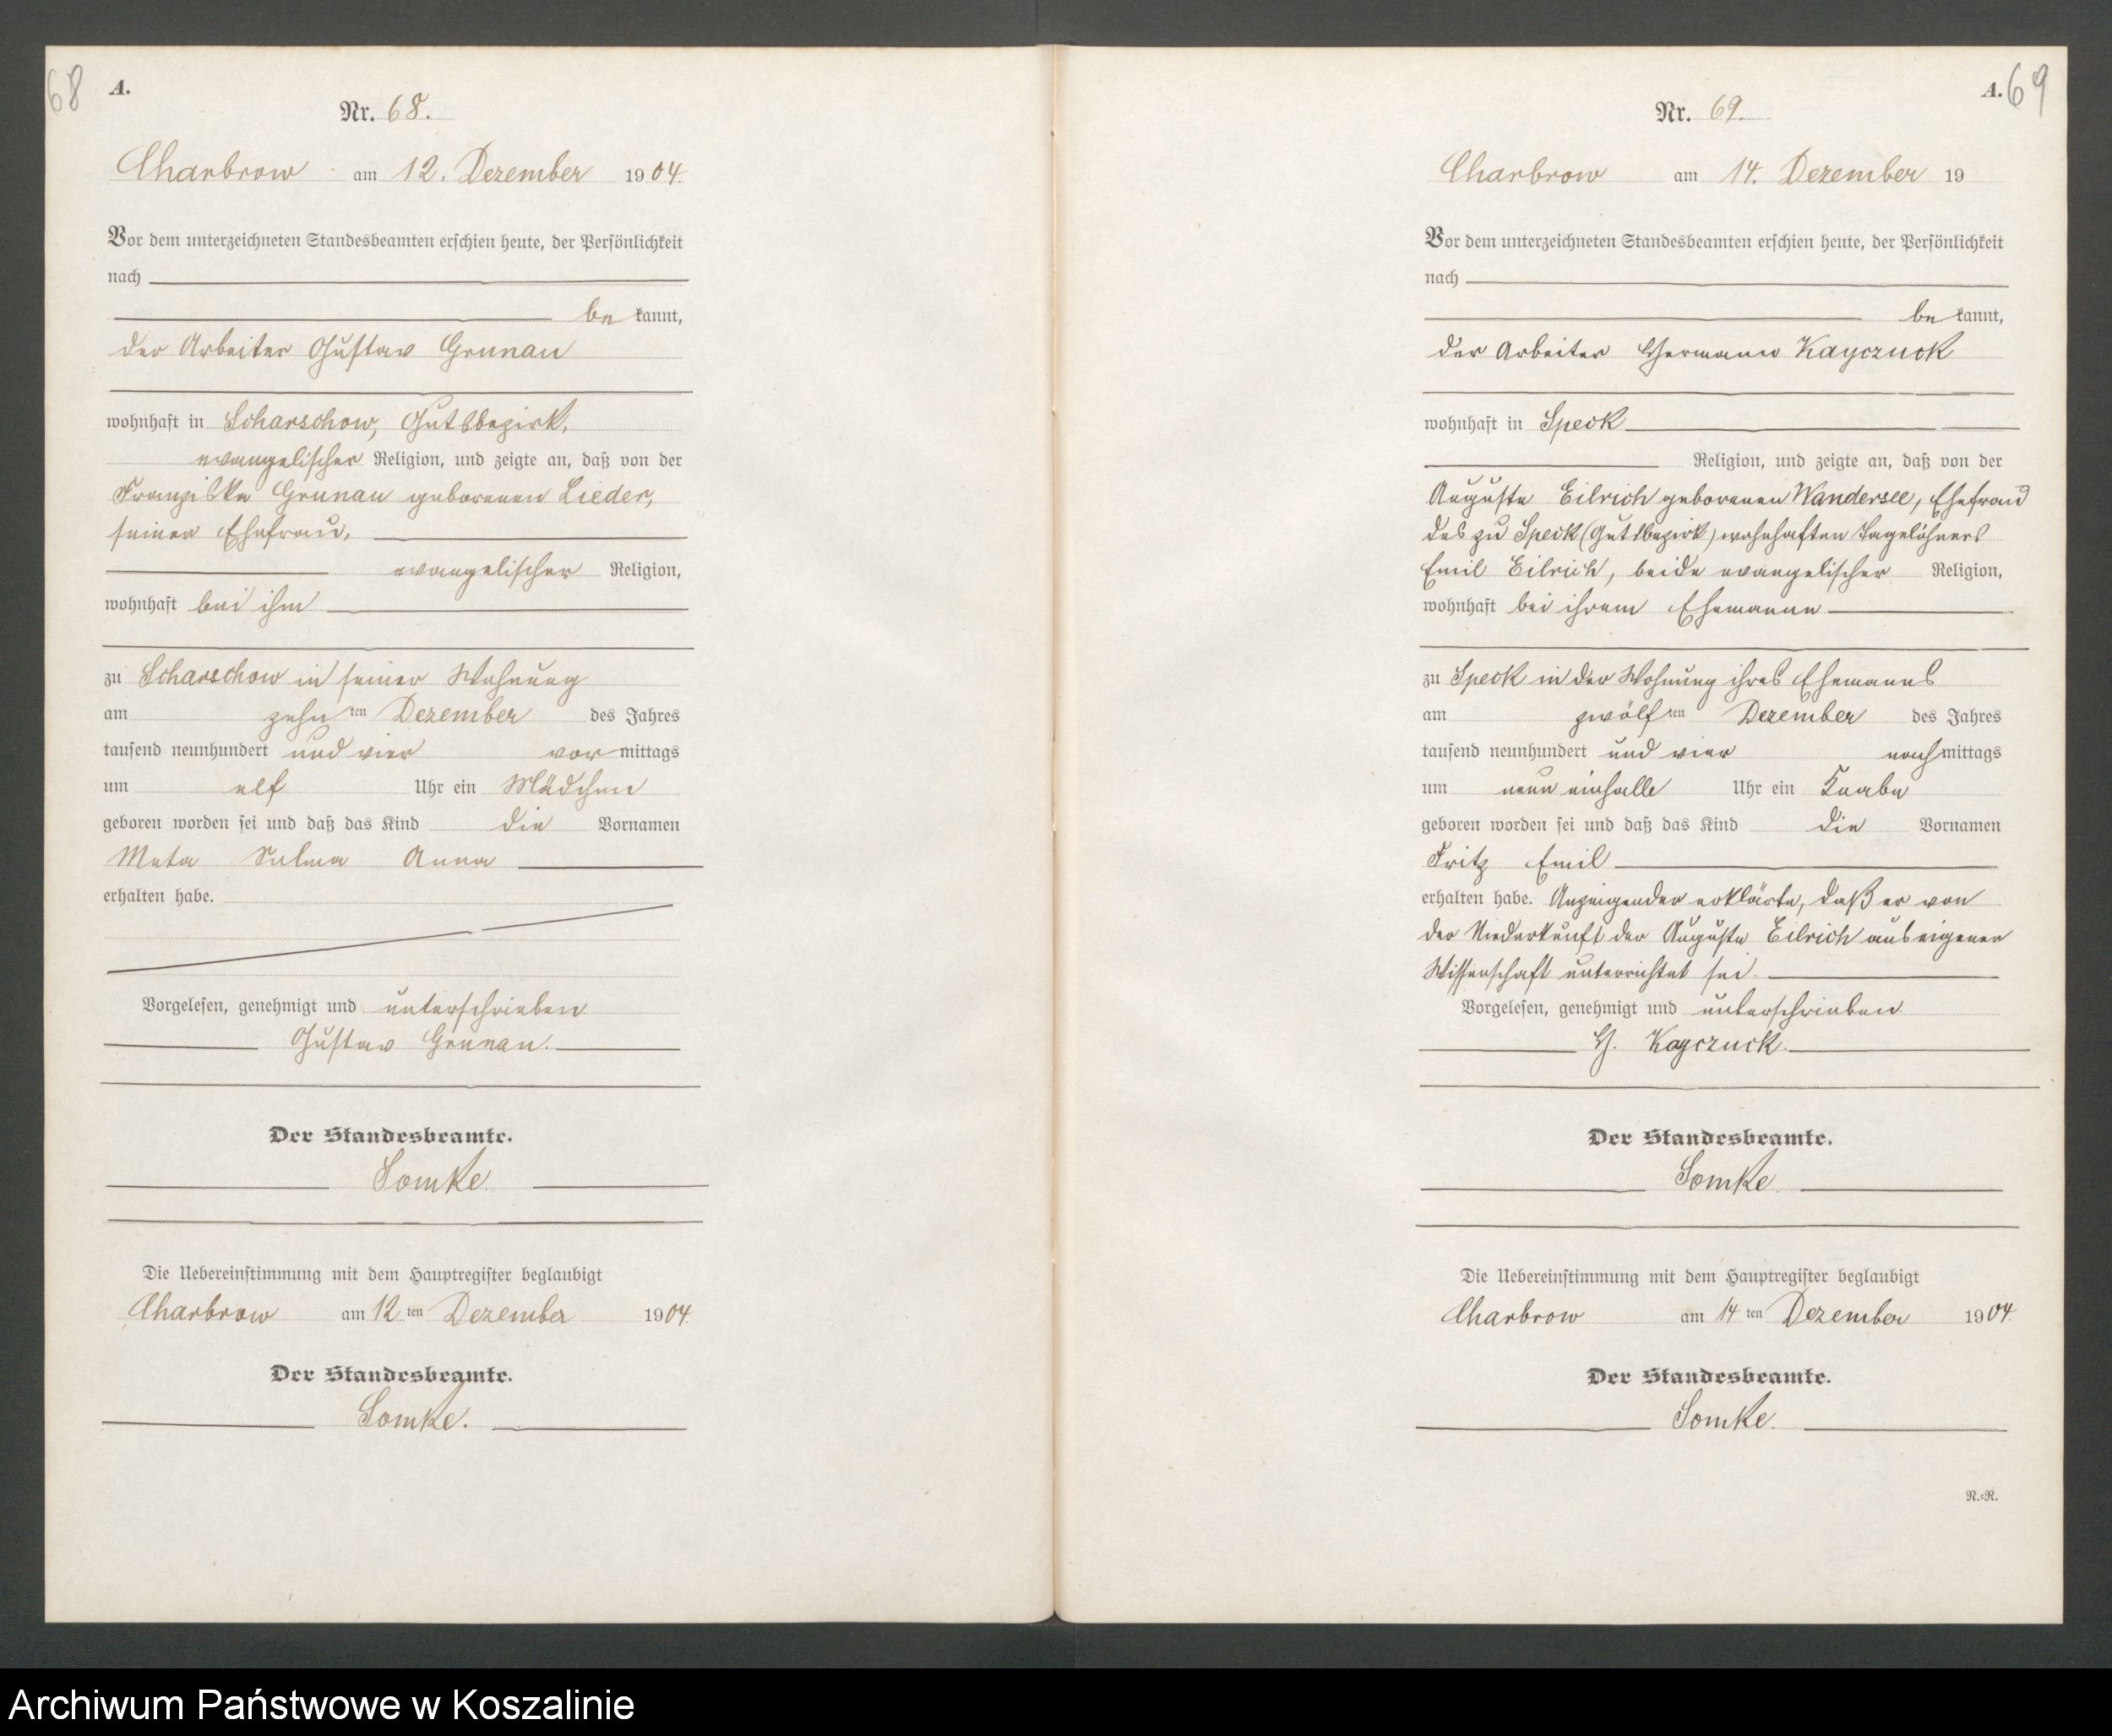 68
A.
Nr. 68.
Charbrow am 12. Dezember 1904.
Vor dem unterzeichneten Standesbeamten erschien heute, der Persönlichkeit
nach
be kannt,
der Arbeiter Gustav Grunau
wohnhaft in Scharschow, Gutsbezirk,
evangelischer Religion, und zeigte an, daß von der
Franziska Grunau geborenen Lieder,
seiner Ehefrau,
evangelischer Religion,
wohnhaft bei ihm
zu Scharschow in seiner Wohnung
am zehn ten Dezember des Jahres
tausend neunhundert und vier vor mittags
um elf Uhr ein Mädchen
geboren worden sei und daß das Kind die Vornamen
Meta Selma Anna
erhalten habe.
Vorgelesen, genehmigt und unterschrieben
Gustav Grunau.
Der Standesbeamte.
Somke
Die Uebereinstimmung mit dem Hauptregister beglaubigt
Charbrow am 12 ten Dezember 1904.
Der Standesbeamte.
Somke.
A. 69
Nr. 69.
Charbrow am 14. Dezember 19
Vor dem unterzeichneten Standesbeamten erschien heute, der Persönlichkeit
nach
be kannt,
der Arbeiter Hermann Kayczuck
wohnhaft in Speck
Religion, und zeigte an, daß von der
Auguste Eilrich geborenen Wandersee, Ehefrau
des zu Speck (Gutsbezirk) wohnhaften Tagelöhners
Emil Eilrich, beide evangelischer Religion,
wohnhaft bei ihrem Ehemanne
zu Speck in der Wohnung ihres Ehemanns
am zwölf ten Dezember des Jahres
tausend neunhundert und vier nach mittags
um neun einhalb Uhr ein Knabe
geboren worden sei und daß das Kind die Vornamen
Fritz Emil
erhalten habe. Anzeigender erklärte, daß er von
der Niederkunft der Auguste Eilrich aus eigener
Wissenschaft unterrichtet sei.
Vorgelesen, genehmigt und unterschrieben
H. Kayczuck.
Der Standesbeamte.
Somke.
Die Uebereinstimmung mit dem Hauptregister beglaubigt
Charbrow am 14 ten Dezember 1904.
Der Standesbeamte.
Somke.
R.=R.
Archiwum Państwowe w Koszalinie